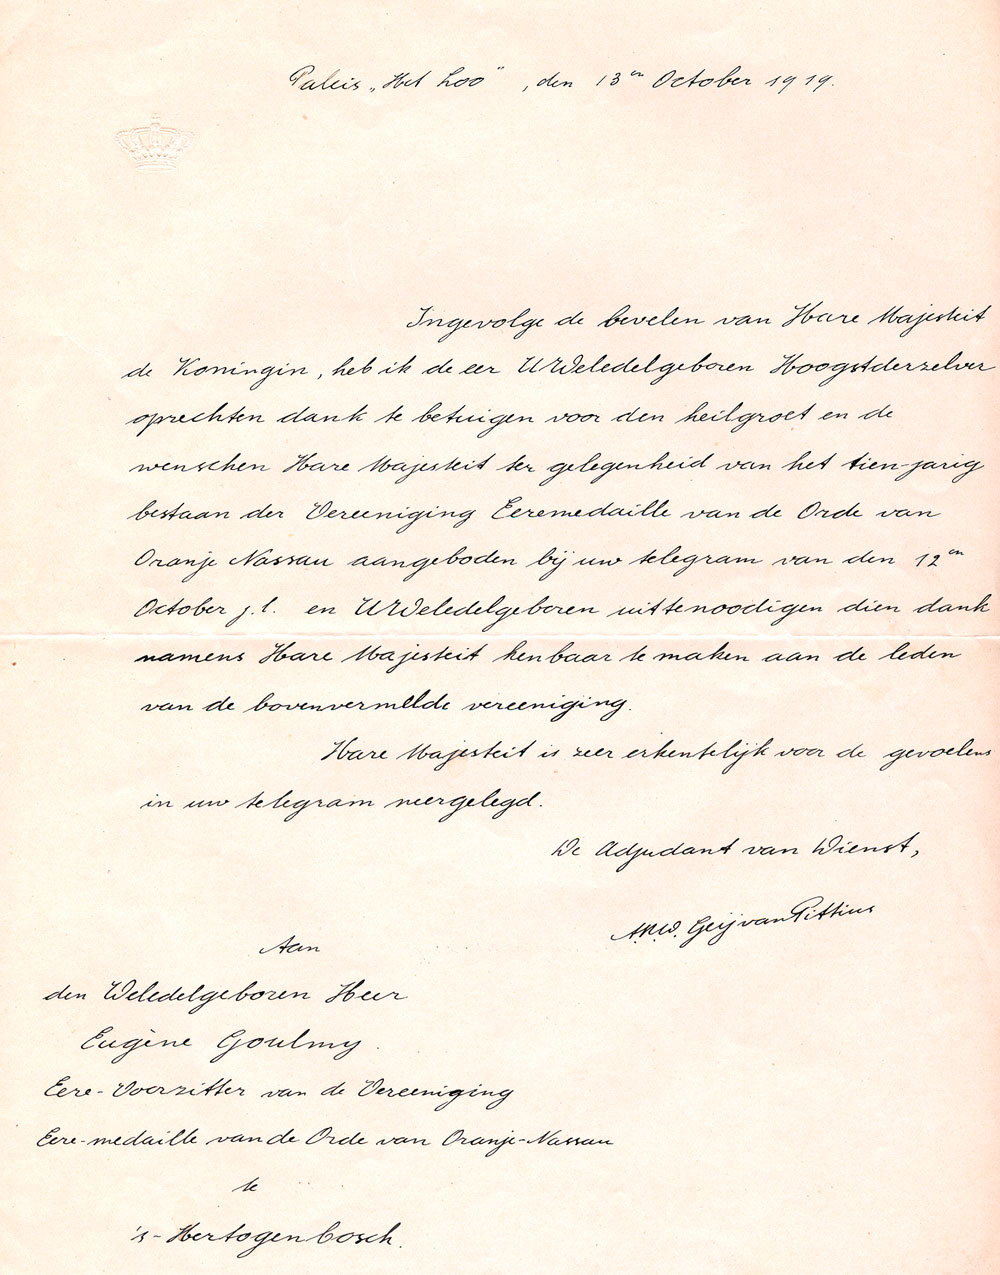 Paleis „Het Loo” , den 13en October 1919.
Ingevolge de bevelen van Hare Majesteit
de Koningin, heb ik de eer UWeledelgeboren Hoogstderzelver
oprechten dank te betuigen voor den heilgroet en de
wenschen Hare Majesteit ter gelegenheid van het tien-jarig
bestaan der Vereeniging Eeremedaille van de Orde van
Oranje Nassau aangeboden bij uw telegram van den 12en
October j.l. en UWeledelgeboren uittenoodigen dien dank
namens Hare Majesteit kenbaar te maken aan de leden
van de bovenvermelde vereeniging.
Hare Majesteit is zeer erkentelijk voor de gevoelens
in uw telegram neergelegd.
De Adjudant van Dienst,
A.R.W. Geij van Pittius
Aan
den Weledelgeboren Heer
Eugène Goulmy.
Eere-Voorzitter van de Vereeniging
Eere-medaille van de Orde van Oranje-Nassau
te
's-Hertogenbosch.